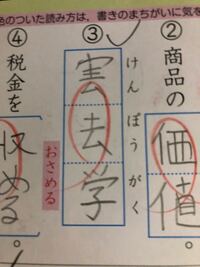 色のついた読み方は，書きのまちがいに気を
②
商品の
価値。
③
けんぽうがく
害去学
④
税金を
おさめる
収める。